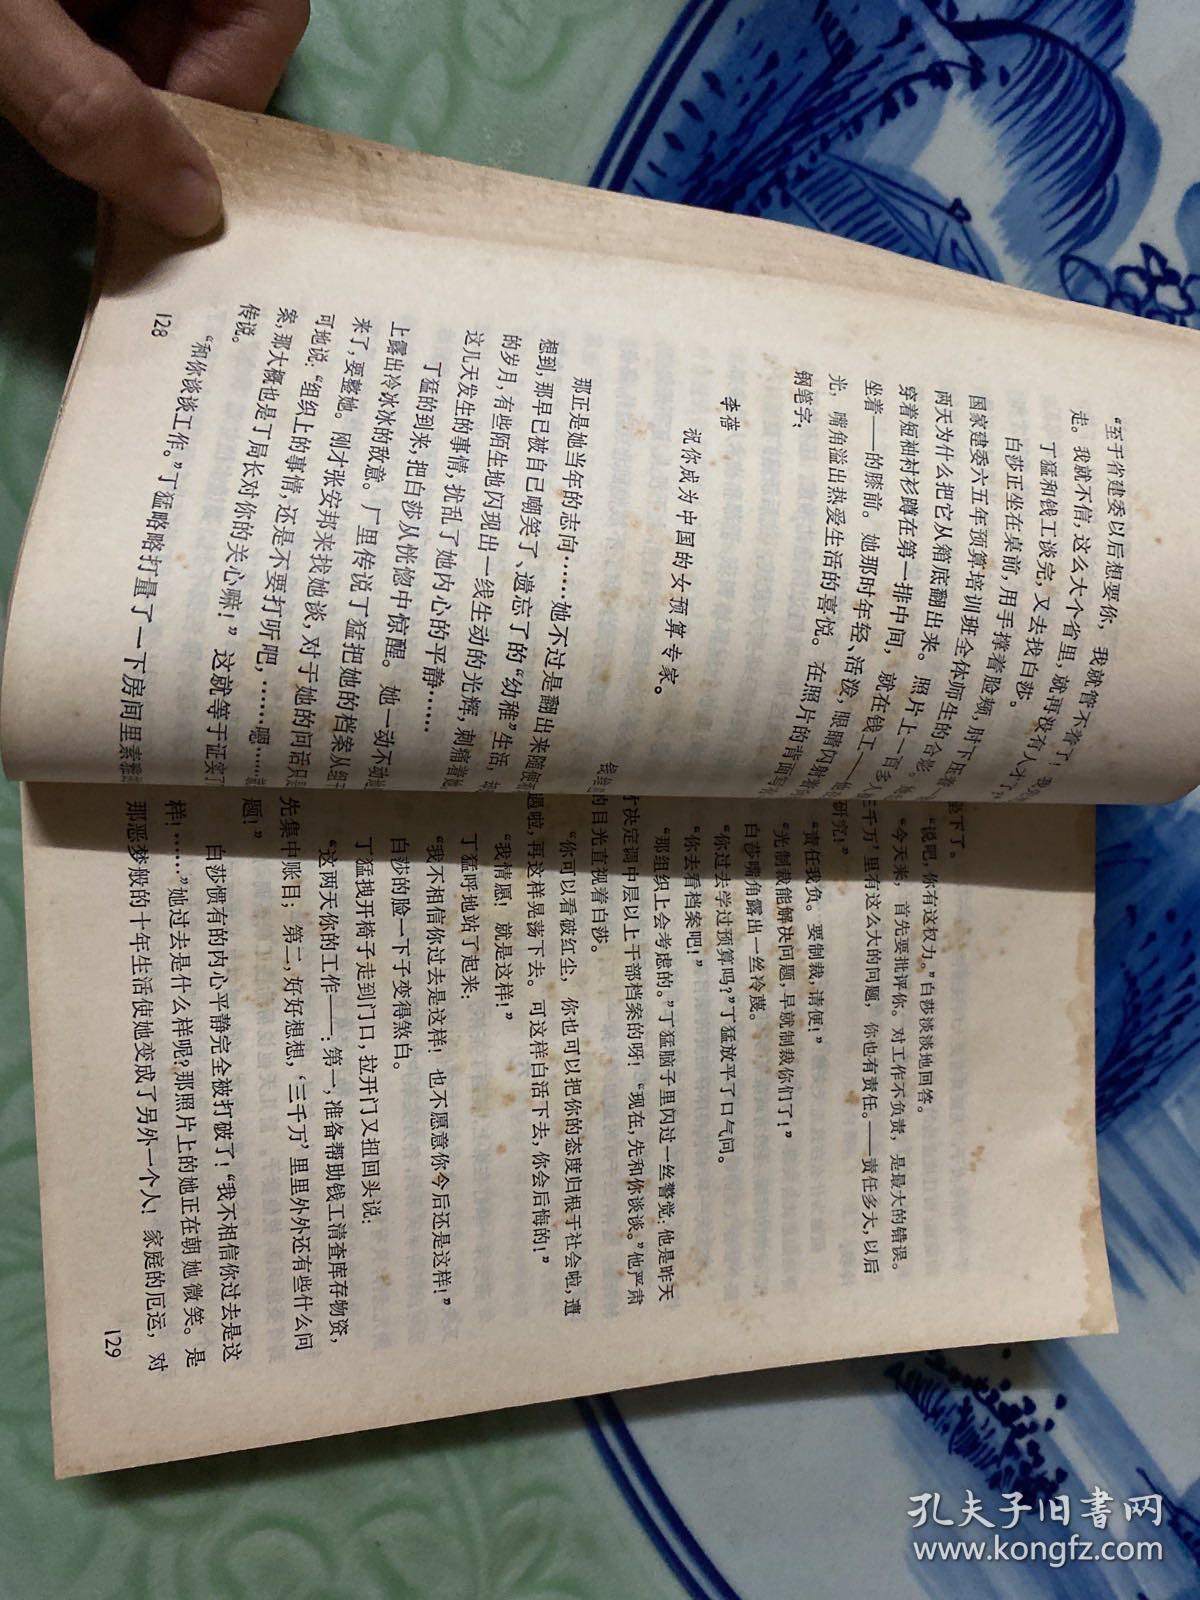 “至于省建委以后想要你，我就管不着了，
走。我就不信，这么大个省里，就再没有人才了
丁猛和钱工谈完，又去找白莎。
白莎正坐在桌前，用手撑着脸颊，肘下压着
国家建委六五年预算培训班全体师生的合影。
两天为什么把它从箱底翻出来。照片上一百多人
穿着短袖衬衫蹲在第一排中间，就在钱工——
坐着——的膝前。她那时年轻、活泼，眼睛闪射着
光，嘴角溢出热爱生活的喜悦。在照片的背面写
钢笔字：
李蓓
祝你成为中国的女预算专家。
那正是她当年的志向……她不过是翻出来随便
想到，那早已被自己嘲笑了、遗忘了的“幼稚”生活，却
的岁月，有些陌生地闪现出一线生动的光辉，刺痛着她
这几天发生的事情，扰乱了她内心的平静……
丁猛的到来，把白莎从恍惚中惊醒。她一动不动地
上露出冷冰冰的敌意。厂里传说丁猛把她的档案从组干
来了，要整她。刚才张安邦来找她谈，对于她的问话只是
可地说：“组织上的事情，还是不要打听吧，……嗯……就
案，那大概也是丁局长对你的关心嘛！”这就等于证实了
传说。
“和你谈谈工作。”丁猛略略打量了一下房间里素雅的
128
坐下了。
“说吧，你有这权力。”白莎淡淡地回答。
“今天来，首先要批评你。对工作不负责，是最大的错误。
三千万’里有这么大的问题，你也有责任。——责任多大，以后
研究！”
“责任我负。要制裁，请便！”
“光制裁能解决问题，早就制裁你们了！”
白莎嘴角露出一丝冷蔑。
“你过去学过预算吗？”丁猛放平了口气问。
“你去看档案吧！”
“那组织上会考虑的。”丁猛脑子里闪过一丝警觉：他是昨天
才决定调中层以上干部档案的呀！“现在，先和你谈谈。”他严肃
的目光直视着白莎。
“你可以看破红尘，你也可以把你的态度归根于社会啦，遭
遇啦，再这样晃荡下去。可这样白活下去，你会后悔的！”
“我情愿！就是这样！”
丁猛呼地站了起来：
“我不相信你过去是这样！也不愿意你今后还是这样！”
白莎的脸一下子变得煞白。
丁猛拽开椅子走到门口，拉开门又扭回头说：
“这两天你的工作——：第一，准备帮助钱工清查库存物资，
先集中账目；第二，好好想想，‘三千万’里里外外还有些什么问
题！”
白莎惯有的内心平静完全被打破了！“我不相信你过去是这
样！……”她过去是什么样呢？那照片上的她正在朝她微笑。是
那恶梦般的十年生活使她变成了另外一个人！家庭的厄运，对
129
孔夫子旧书网
www.kongfz.com